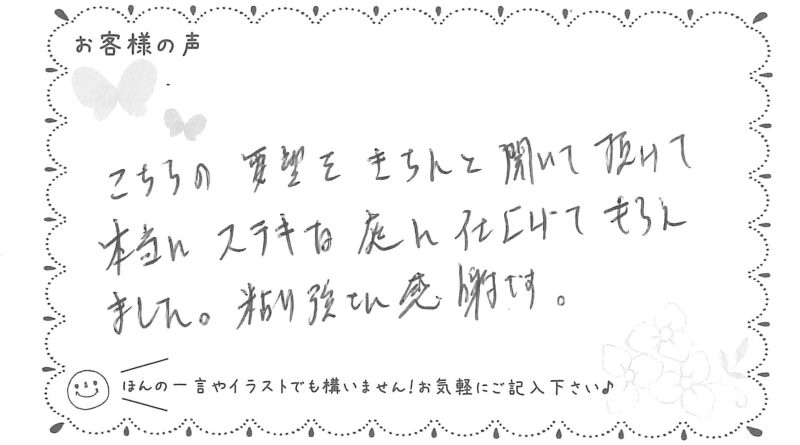 お客様の声
こちらの 要望を きちんと 聞いて 頂けて
本当に ステキな 庭に 仕上げて もらえ
ました。粘り強さに 感謝です。
ほんの一言やイラストでも構いません!お気軽にご記入下さい♪